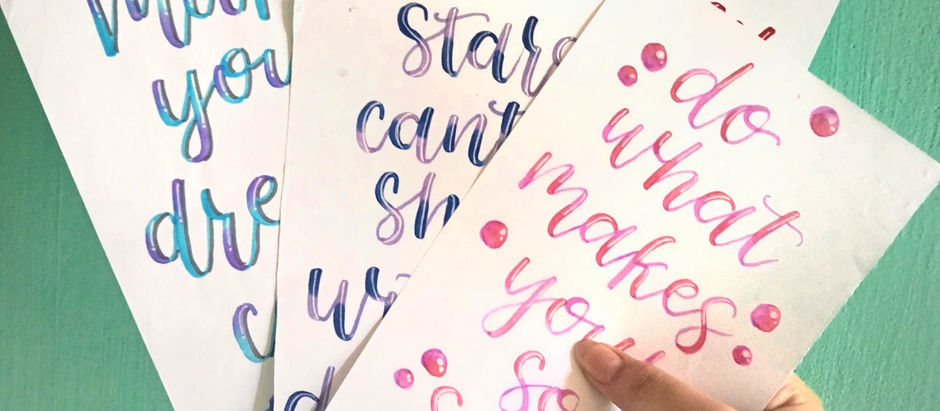 you
dre
Stars
cant
sh
do
what
makes
you
so